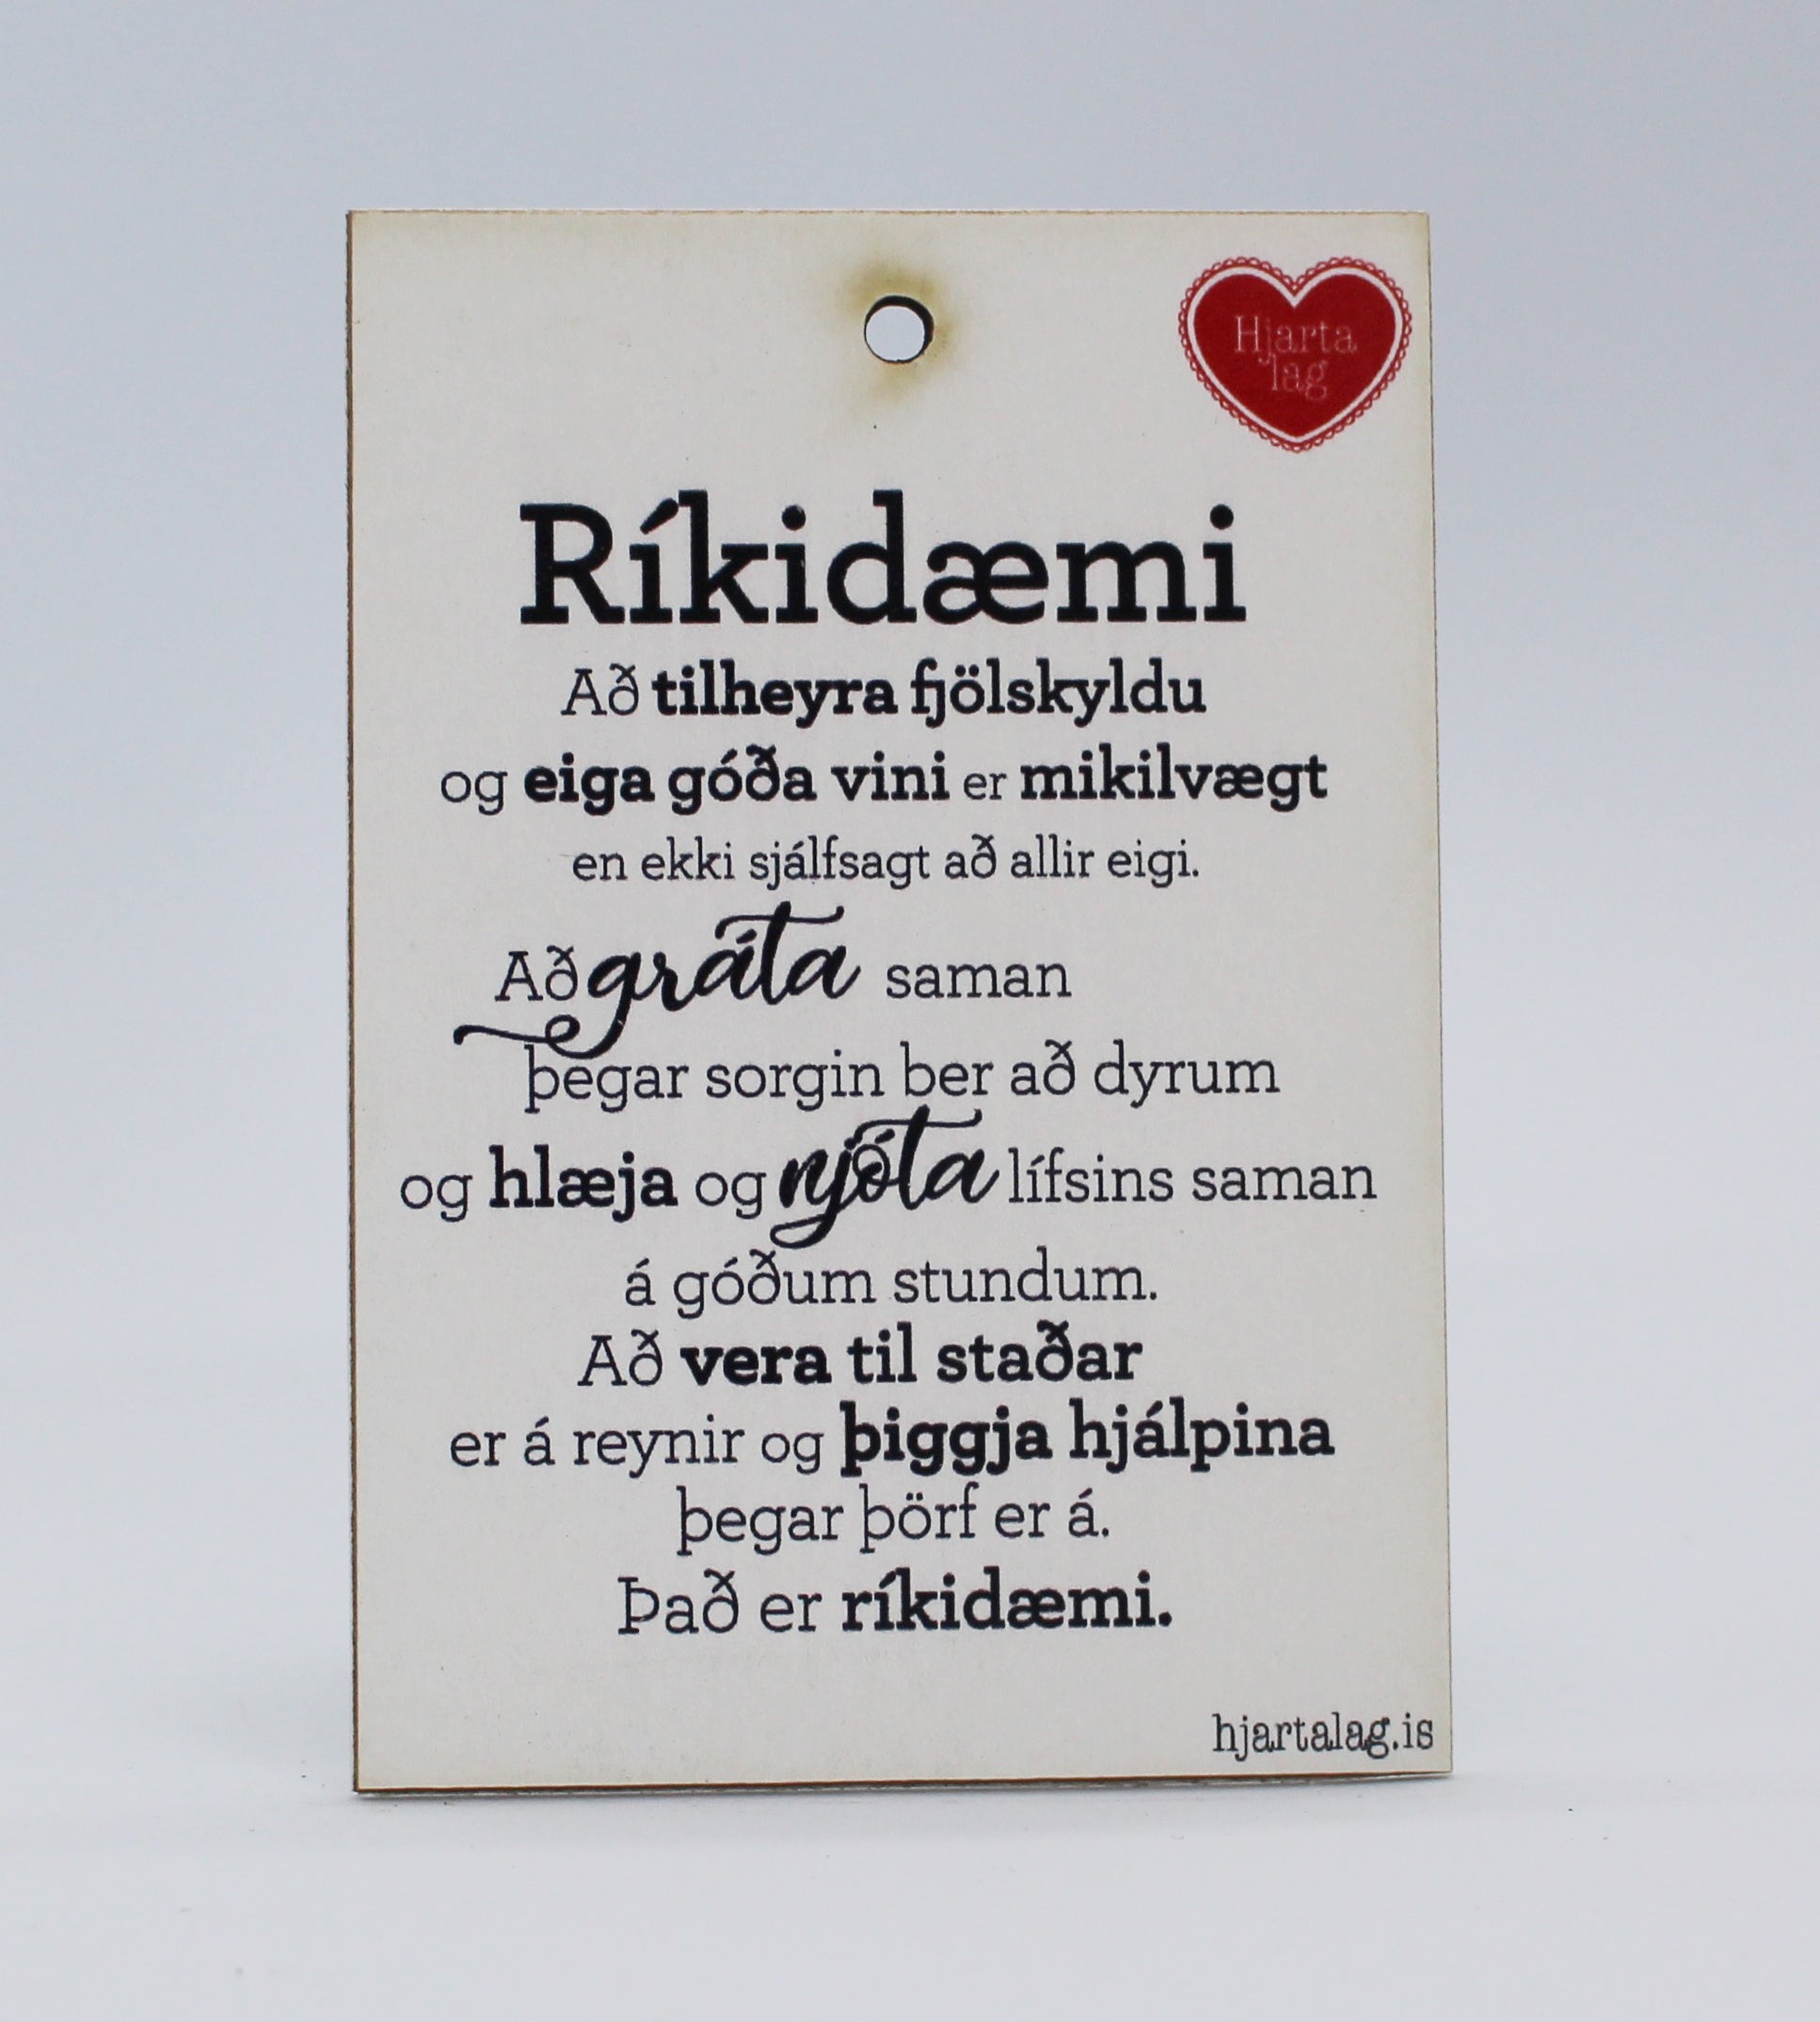 Hjarta
lag
Ríkidæmi
Að tilheyra fjölskyldu
og eiga góða vini er mikilvægt
en ekki sjálfsagt að allir eigi.
Að gráta saman
þegar sorgin ber að dyrum
og hlæja og njóta lífsins saman
á góðum stundum.
Að vera til staðar
er á reynir og þiggja hjálpina
þegar þörf er á.
Það er ríkidæmi.
hjartalag.is